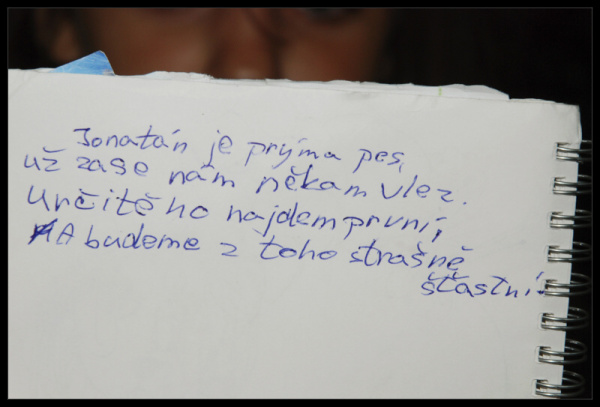 Jonatán je prýma pes,
už zase nám někam vlez.
Určitě ho najdem první,
A budeme z toho strašně
šťastní.